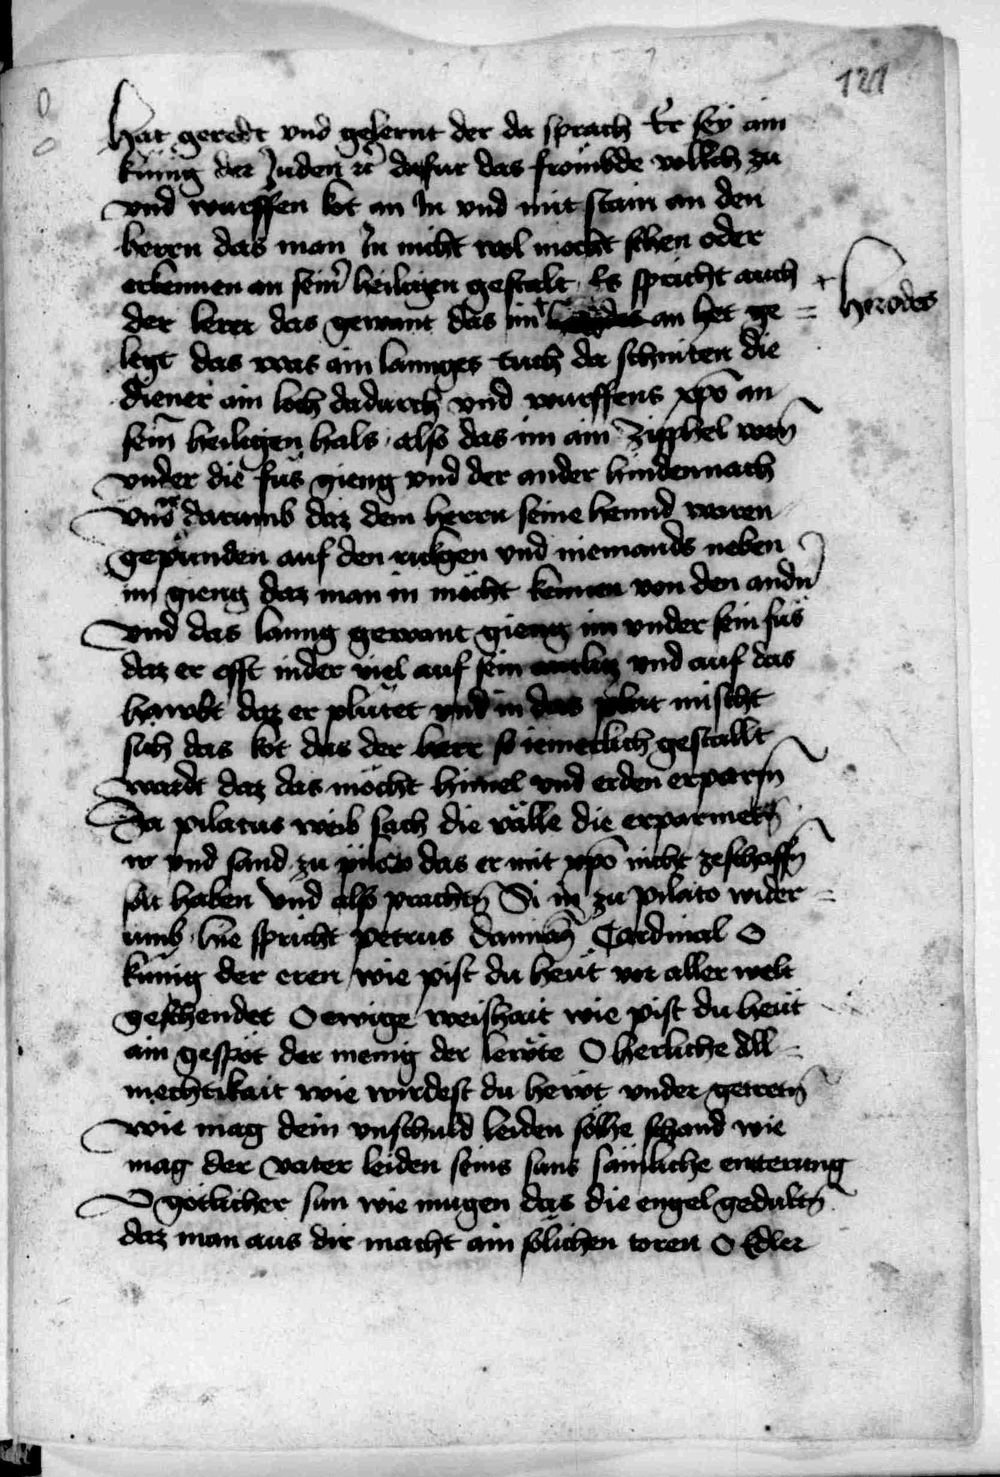 121
hat geredt vnd gelernt der da sprach Er sey ain
künig der Juden rc dafur das frömbde volkch zu
vnd wurffen kot an In vnd mit stain an den
herrn das man In nicht wol mocht sehen oder
erkennen an seinr heiligen gestalt. Es spricht auch
der lerer das gewant das im + an het ge =
+ herodes
legt das was ain lannges tuch da schniten die
diener ain loch dadurch vnd wurffens xpo an
sein heiligen hals also das im ain zipphel vorn
vnder die füs gieng vnd der ander hindennach
vnd darumb daz dem herrn seine hennd waren
gepunden auf den rukgen vnd niemands neben
im gieng daz man in möcht kennen von den andn
vnd das lanng gewant gieng im vnder sein füs
daz er offt nider viel auf sein antlitz vnd auf das
hawbt daz er plutet vnd in das plut mischt
sich das kot das der herr so iemerlich gestallt
wardt daz das möcht himel vnd erden erparmn
Da pilatus weib sach die välle die erparmetn
w vnd sand zu pilato das er mit xpo nicht zeschaffn
solt haben vnd also prachtn Si in zu pilato wider =
umb hie spricht petrus damian Cardinal O
künig der eren wie pist du heut vor aller welt
geschendet O ewige weishait wie pist du heut
ain gespöt der menig der lewte O herliche All =
mechtikait wie wirdest du hewt vnder getretn
wie mag dein vnschuld leiden solhe schand wie
mag der vater leiden seins suns sämliche entterung
O götlicher sun wie mugen das die engel gedultn
daz man aus dir macht ain solichen toren O Edler